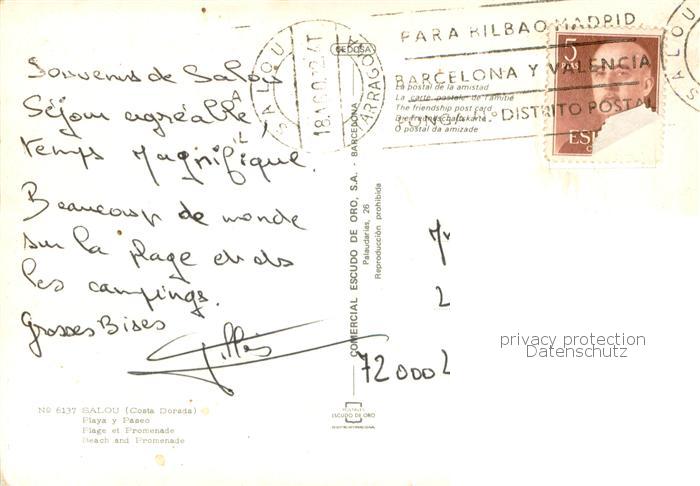 Souvenirs de Salou
Séjour agréable,
temps Magnifique.
Beaucoup de monde
sur la plage et ds
les campings.
Grosses Bises
Gilles
Nº 6137 SALOU (Costa Dorada)
Playa y Paseo
Plage et Promenade
Beach and Promenade
COMERCIAL ESCUDO DE ORO, S.A. - BARCELONA
Palaudarias, 26
Reproducción prohibida
POSTALES
ESCUDO DE ORO
CEDOSA
La postal de la amistad
La carte postale de l'amitié
The friendship post card
Die Freundschaftskarte
O postal da amizade
SALOU
TARRAGONA
PARA BILBAO MADRID
BARCELONA Y VALENCIA
DISTRITO POSTAL
SALOU
5
PTAS
72000
privacy protection
Datenschutz